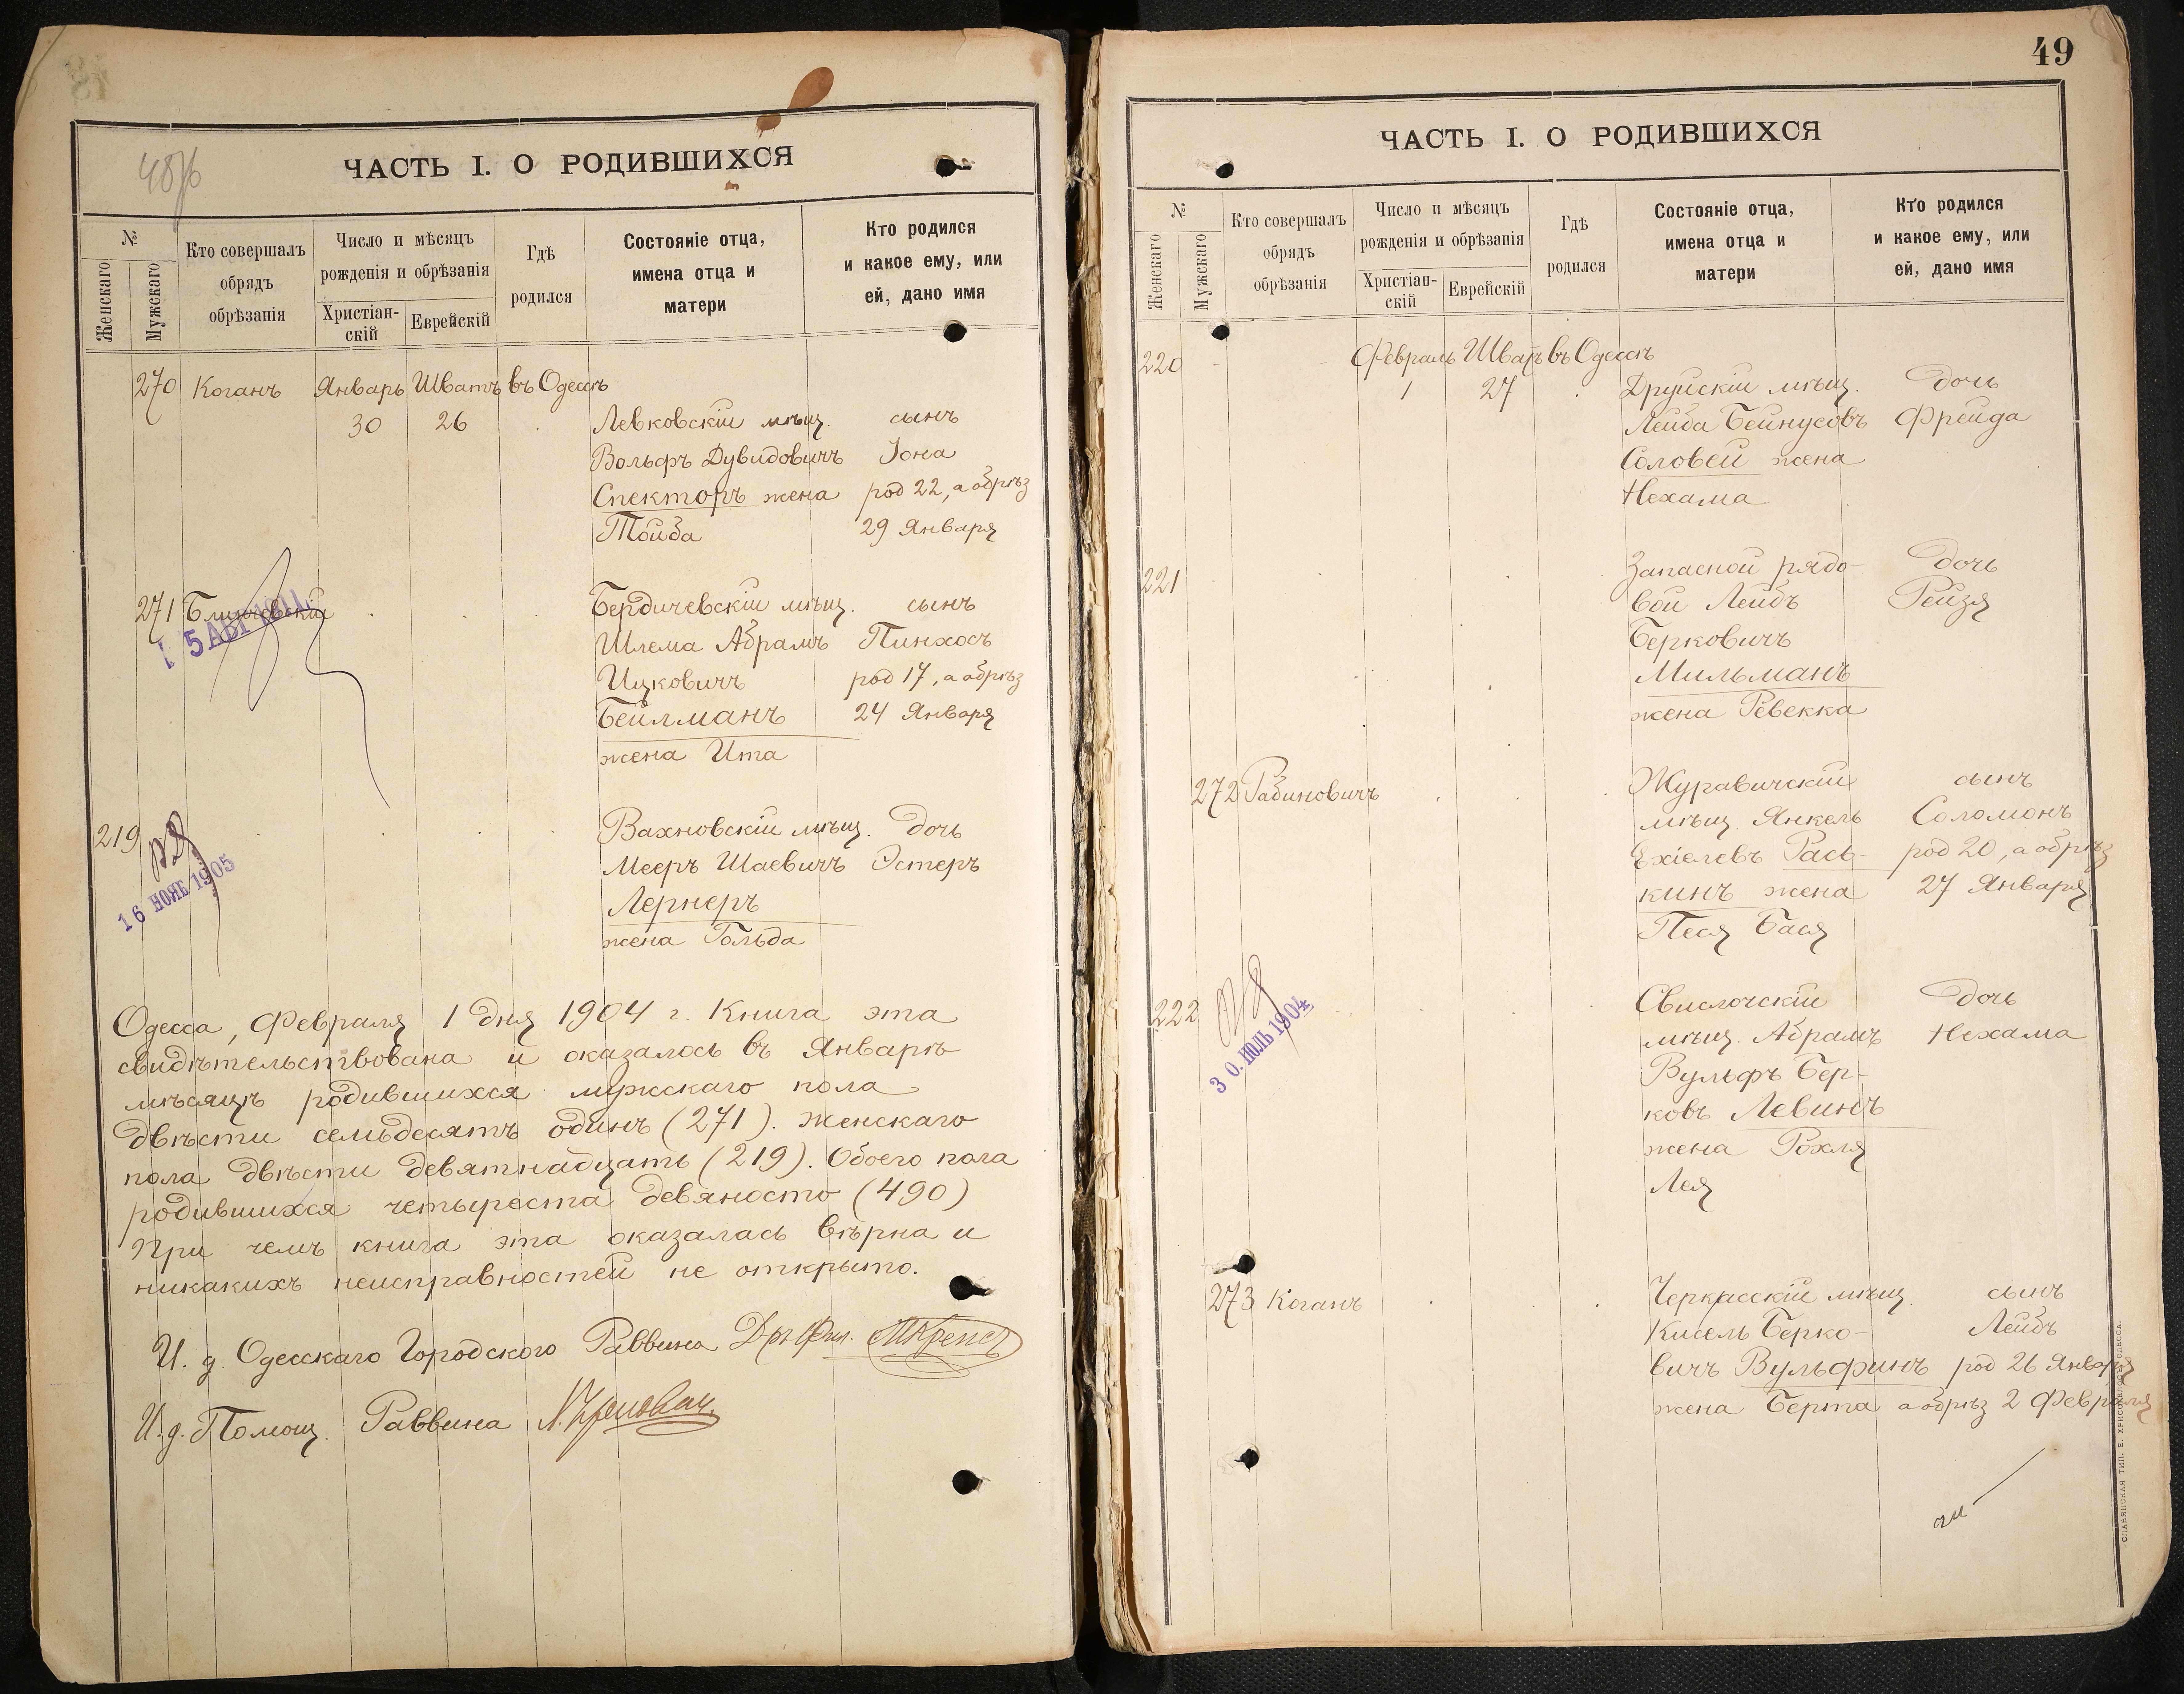 48/б
ЧАСТЬ I. О РОДИВШИХСЯ
№
Женскаго
Мужскаго
Кто совершалъ
обрядъ
обрѣзанія
Число и мѣсяцъ
рожденія и обрѣзанія
Христіан-
скій
Еврейскій
Гдѣ
родился
Состояніе отца,
имена отца и
матери
Кто родился
и какое ему, или
ей, дано имя
270 Коганъ Январь Шватъ въ Одессѣ
30 26 Левковскій мѣщ. сынъ
Вольфъ Дувидовичъ Іона
Спекторъ жена род 22, а обрѣз
Тойба 29 Января
271 Бердичевскій мѣщ. сынъ
Шлема Абрамъ Пинхосъ
Ицковичъ род 17, а обрѣз
Бейлманъ 24 Января
жена Ита
5 АВГ 1911
219 Вахновскій мѣщ. дочь
Мееръ Шаевичъ Эстеръ
Лернеръ
жена Гольда
16 НОЯБ 1905
Одесса, Февраля 1 дня 1904 г. Книга эта
свидѣтельствована и оказалось въ Январѣ
мѣсяцѣ родившихся мужскаго пола
двѣсти семьдесятъ одинъ (271). Женскаго
пола двѣсти девятнадцать (219). Обоего пола
родившихся четыреста девяносто (490)
При чемъ книга эта оказалась вѣрна и
никакихъ неисправностей не открыто.
И. д. Одесскаго Городского Раввина Дръ Фил.
И. д. Помощ. Раввина
49
ЧАСТЬ I. О РОДИВШИХСЯ
№
Женскаго
Мужскаго
Кто совершалъ
обрядъ
обрѣзанія
Число и мѣсяцъ
рожденія и обрѣзанія
Христіан-
скій
Еврейскій
Гдѣ
родился
Состояніе отца,
имена отца и
матери
Кто родился
и какое ему, или
ей, дано имя
220 Февраль Шватъ въ Одессѣ
1 27 Друйскій мѣщ. дочь
Лейба Бейнусовъ Фрейда
Соловей жена
Нехама
221 Запасной рядо- дочь
вой Лейбъ Рейзя
Берковичъ
Мильманъ
жена Ревекка
272 Рабиновичъ Журавичскій сынъ
мѣщ. Янкель Соломонъ
Ехіелевъ Рась- род 20, а обрѣз
кинъ жена 27 Января
Песя Бася
222 Свислочскій дочь
мѣщ. Абрамъ Нехама
Вульфъ Бер-
ковъ Левинъ
жена Рохля
Лея
30. ИЮЛЬ 1904
273 Коганъ Черкасскій мѣщ. сынъ
Кисель Берко- Лейбъ
вичъ Вульфинъ род 26 Января
жена Берта а обрѣз 2 Февраля
СЛАВЯНСКАЯ ТИП. Е. ХРИСОГЕЛОСЪ ОДЕССА.